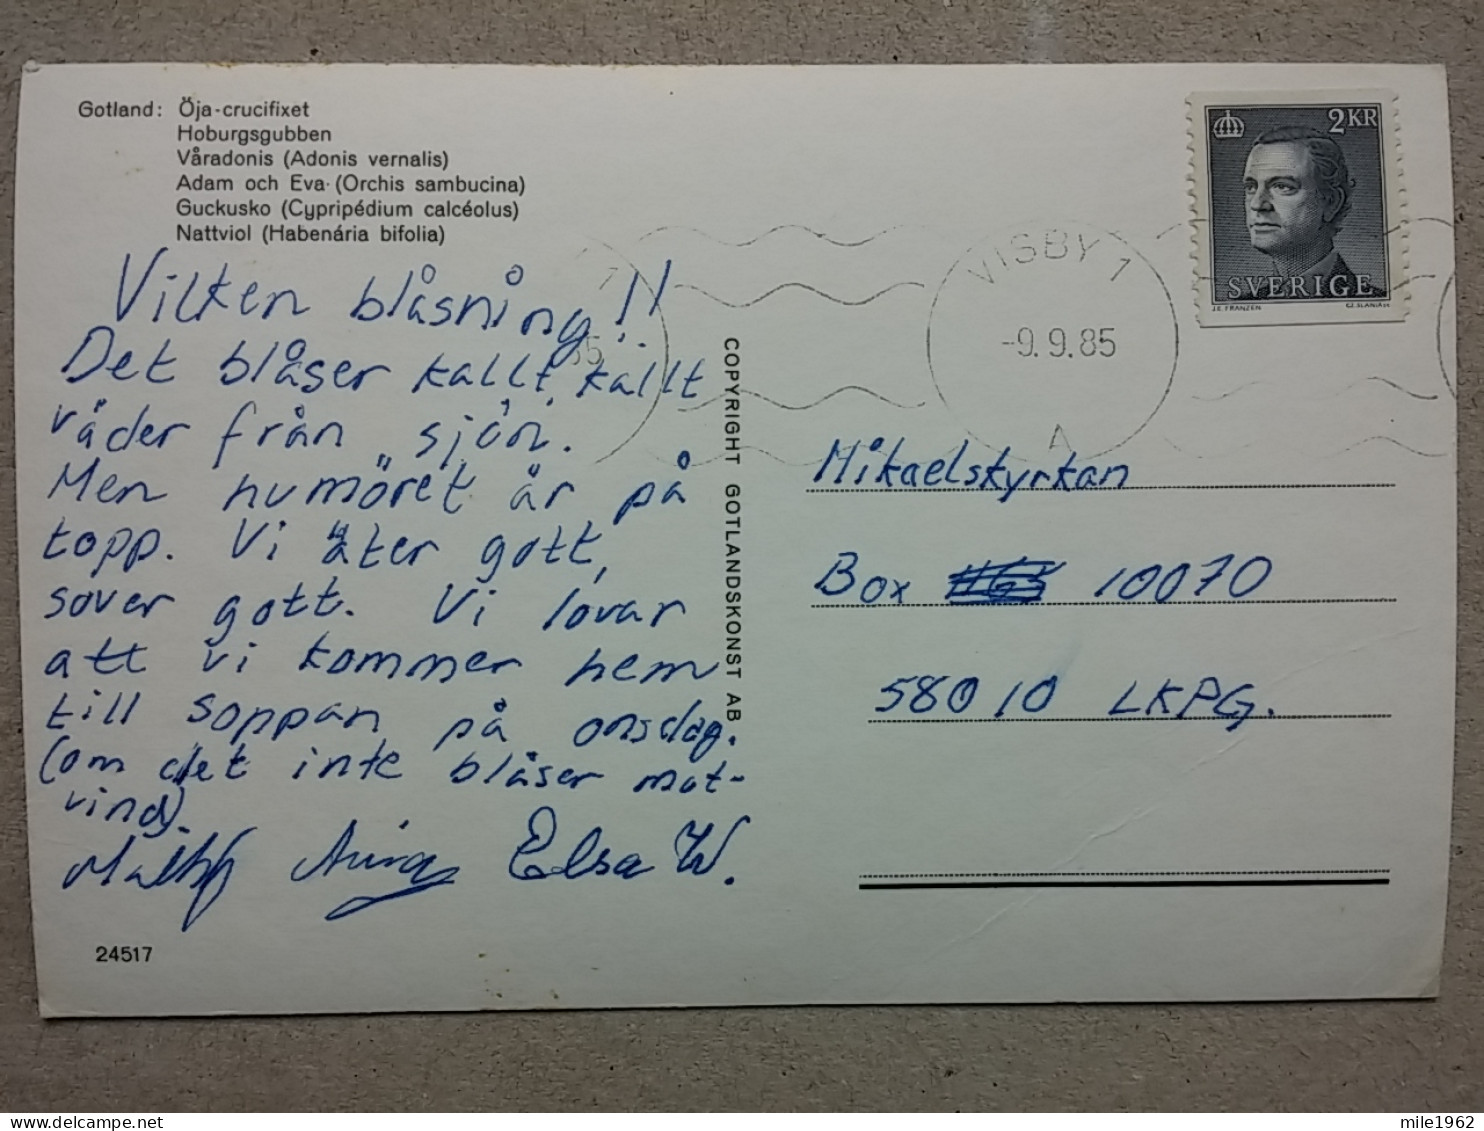 Gotland: Öja-crucifixet
Hoburgsgubben
Våradonis (Adonis vernalis)
Adam och Eva (Orchis sambucina)
Guckusko (Cypripédium calcéolus)
Nattviol (Habenária bifolia)
Vilken blåsning!!
Det blåser kallt, kallt
väder från sjön.
Men humöret är på
topp. Vi äter gott,
sover gott. Vi lovar
att vi kommer hem
till soppan på onsdag.
(om det inte blåser mot-
vind).
Elsa W.
24517
COPYRIGHT GOTLANDSKONST AB
2 KR
SVERIGE
J.E. FRANZEN CZ. SLANIA sc
VISBY 1
-9.9.85
A
1
85
Mikaelskyrkan
Box 10070
58010 LKPG.
mile1962